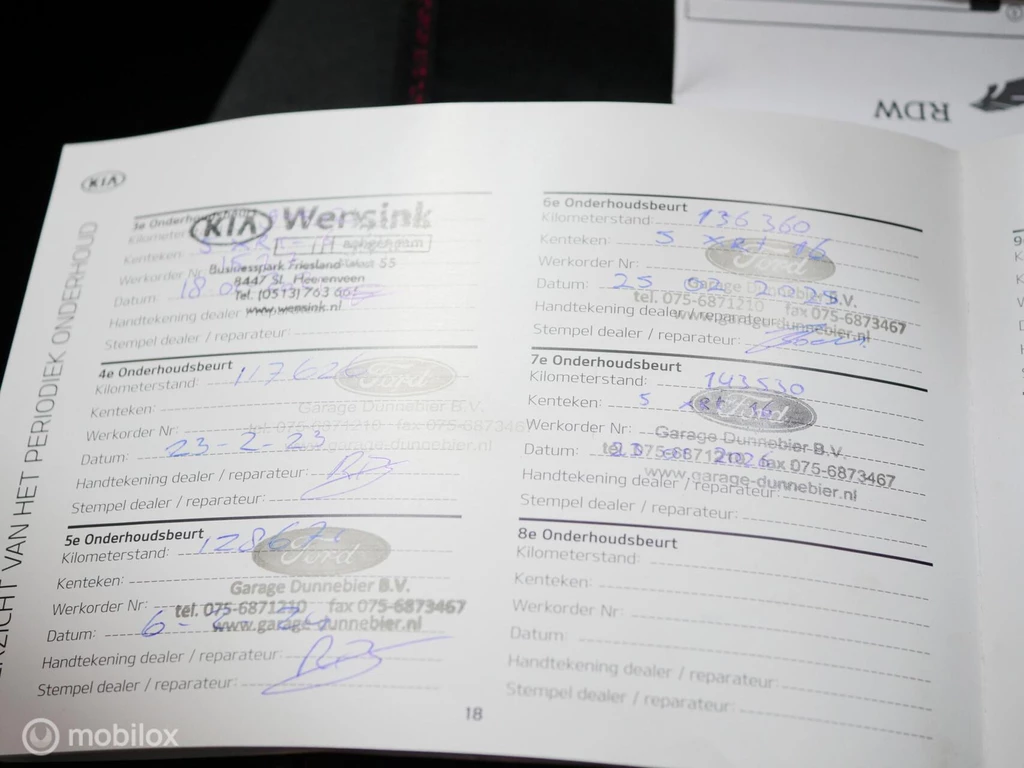 RDW
KIA
ERZICHT VAN HET PERIODIEK ONDERHOUD
3e Onderhoudsbeurt
KIA Wensink
Kenteken:
Werkorder Nr:
Businesspark Friesland-West 55
8447 SL Heerenveen
Datum: 18
Tel. (0513) 763 661
Handtekening dealer
www.wensink.nl
Stempel dealer / reparateur:
4e Onderhoudsbeurt
Kilometerstand: 117626
Ford
Kenteken:
Garage Dunnebier B.V.
Werkorder Nr:
tel. 075-6871210 fax 075-6873467
Datum: 23-2-23
www.garage-dunnebier.nl
Handtekening dealer / reparateur:
Stempel dealer / reparateur:
5e Onderhoudsbeurt
Kilometerstand: 12867
Ford
Kenteken:
Garage Dunnebier B.V.
Werkorder Nr:
tel. 075-6871210 fax 075-6873467
Datum: 6-
www.garage-dunnebier.nl
Handtekening dealer / reparateur:
Stempel dealer / reparateur:
6e Onderhoudsbeurt
Kilometerstand: 136360
Kenteken: 5 XRT 16
Ford
Werkorder Nr:
Datum: 25 02 2025
Garage B.V.
tel. 075-6871210 fax 075-6873467
Handtekening dealer / reparateur:
www.garage-dunnebier.nl
Stempel dealer / reparateur:
7e Onderhoudsbeurt
Kilometerstand: 143530
Kenteken: 5 XRT 16
Ford
Werkorder Nr:
Garage Dunnebier B.V.
Datum: 2026
tel. 075-6871210 fax 075-6873467
www.garage-dunnebier.nl
Handtekening dealer / reparateur:
Stempel dealer / reparateur:
8e Onderhoudsbeurt
Kilometerstand:
Kenteken:
Werkorder Nr:
Datum:
Handtekening dealer / reparateur:
Stempel dealer / reparateur:
18
9
mobilox